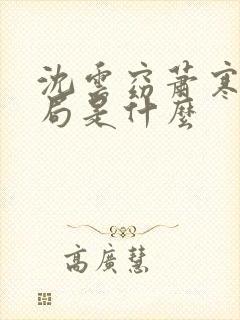 沈雲窈蕭寒
局是什麼
高廣慧